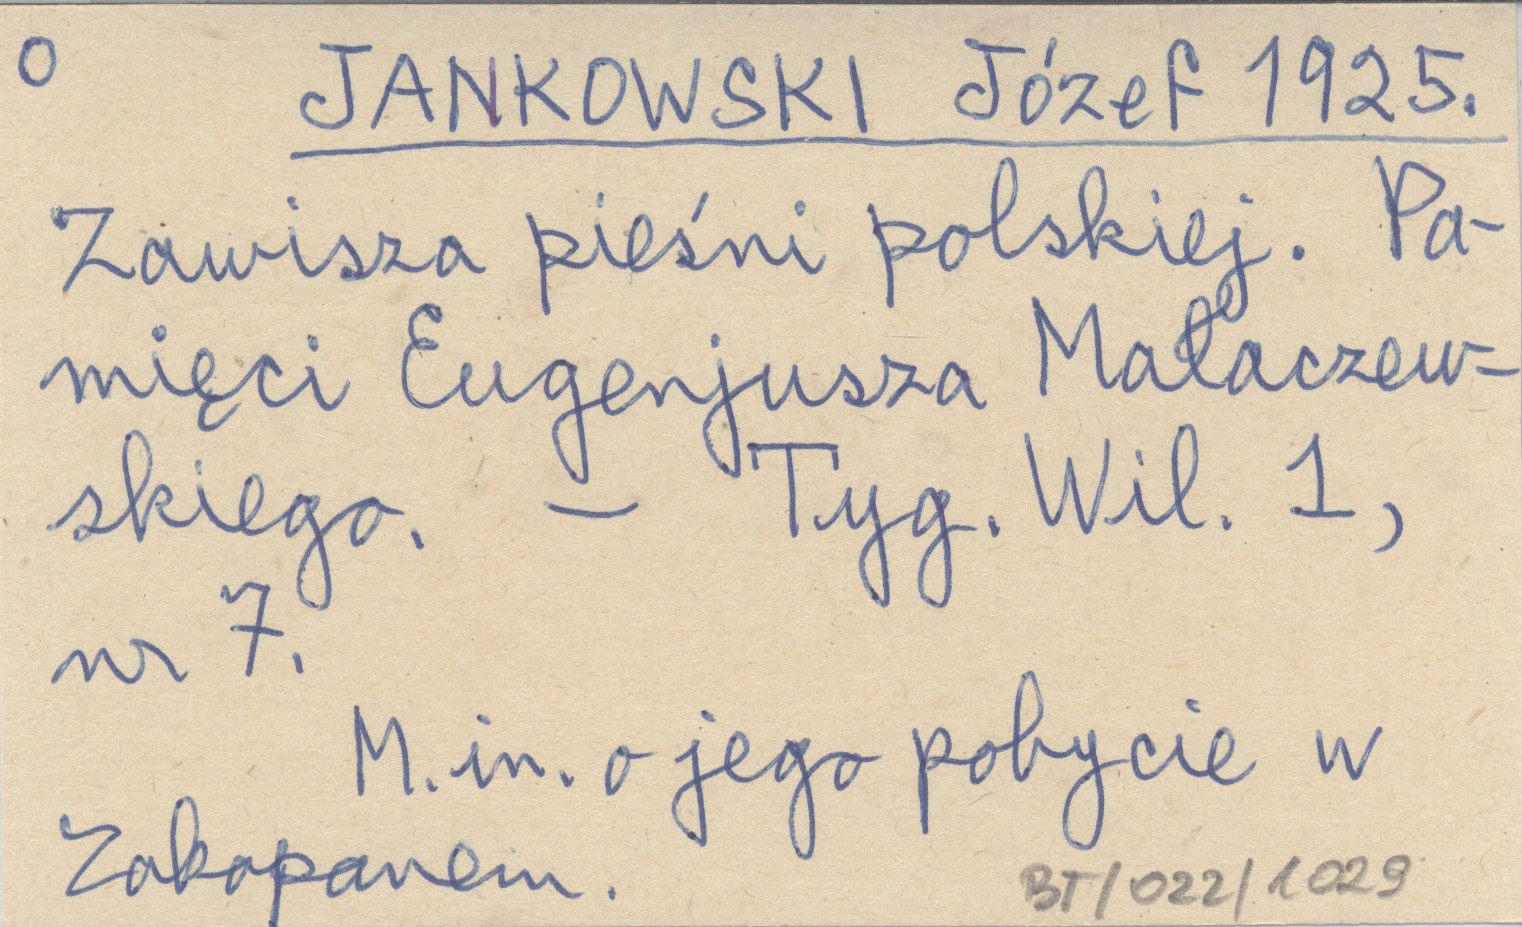 O
JANKOWSKI Józef 1925.
Zawisza pieśni polskiej. Pa-
mięci Eugenjusza Małaczew-
skiego. – Tyg. Wil. 1,
nr 7.
M. in. o jego pobycie w
Zakopanem.
BT/022/1029